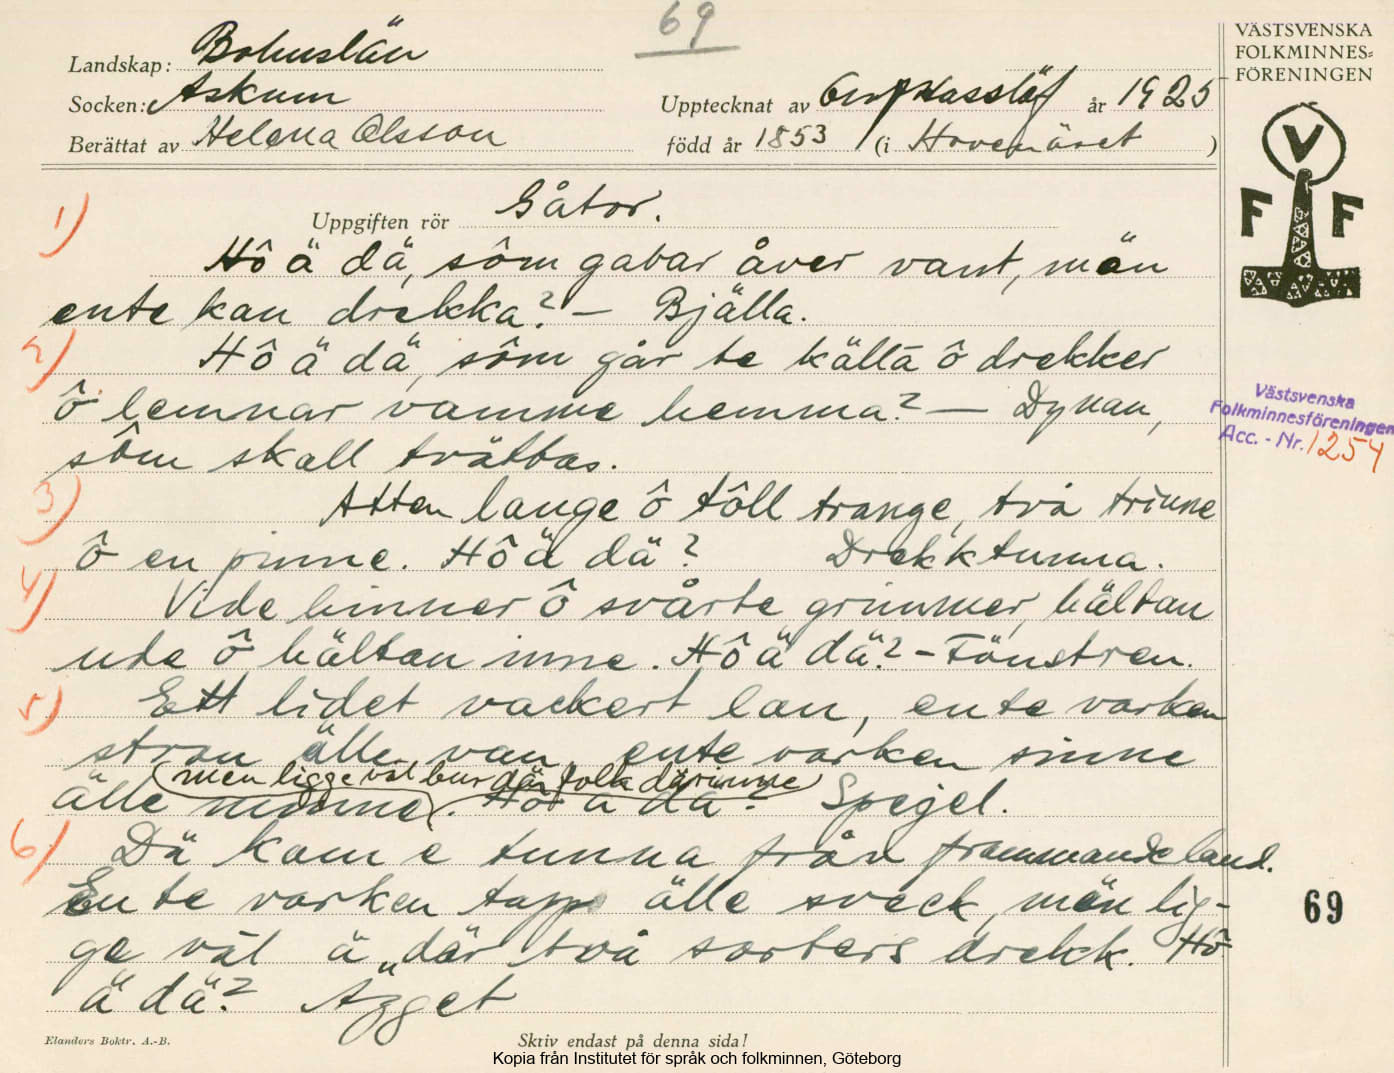 69
Landskap: Bohuslän
Socken: Askum
Upptecknat av år 1925
Berättat av Helena Olsson
född år 1853 (i Hovenäset )
VÄSTSVENSKA
FOLKMINNES-
FÖRENINGEN
V
F F
Uppgiften rör Gåtor.
1) Hô ä dä, sôm gabar åver vant, män
ente kan drekka? – Bjälla.
2) Hô ä dä, sôm går te källa ô drekker
ô lemnar vamme hemma? – Dynan,
sôm skall tvättas.
3) Atten lange ô tôll trange, två trinne
ô en pinne. Hô ä dä? Drekktunna.
4) Vide hinner ô svårte grimmer, hältan
ute ô hältan inne. Hô ä dä? – Fönstren.
5) Ett lidet vackert lan, ente varken
stran älle van, ente varken sinne
men ligge väl bur där folk därinne
älle minne. Hô ä dä? Spegel.
6) Dä kom e tunna från frammande land.
Ente varken tapp älle sveck, män lig-
ge väl ä där två sorters drekk. Hô
ä dä? Ägget
Västsvenska
Folkminnesföreningen
Acc. - Nr. 1254
69
Elanders Boktr. A.-B.
Skriv endast på denna sida!
Kopia från Institutet för språk och folkminnen, Göteborg